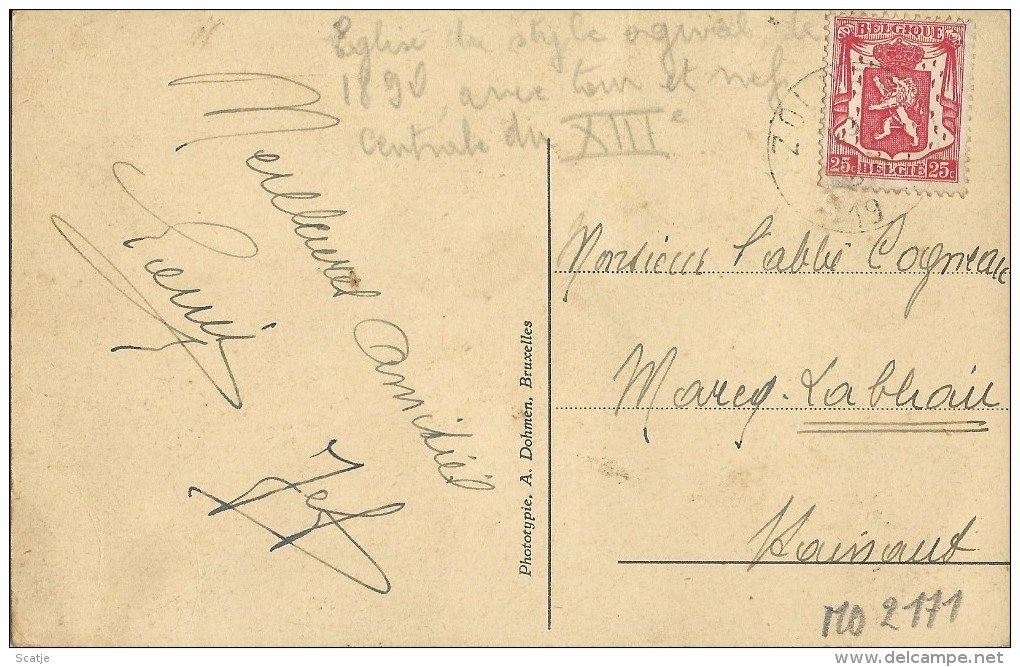 Eglise du style ogival de
1890 avec tour et nef
centrale du XIIIe
BELGIQUE
25c BELGIË 25c
19
Meilleures Amitiés
Jef
Phototypie, A. Dohmen, Bruxelles
Monsieur l'abbé Cogneau
Marcq-Labliau
Hainaut
MO 2171
Scatje
www.delcampe.net